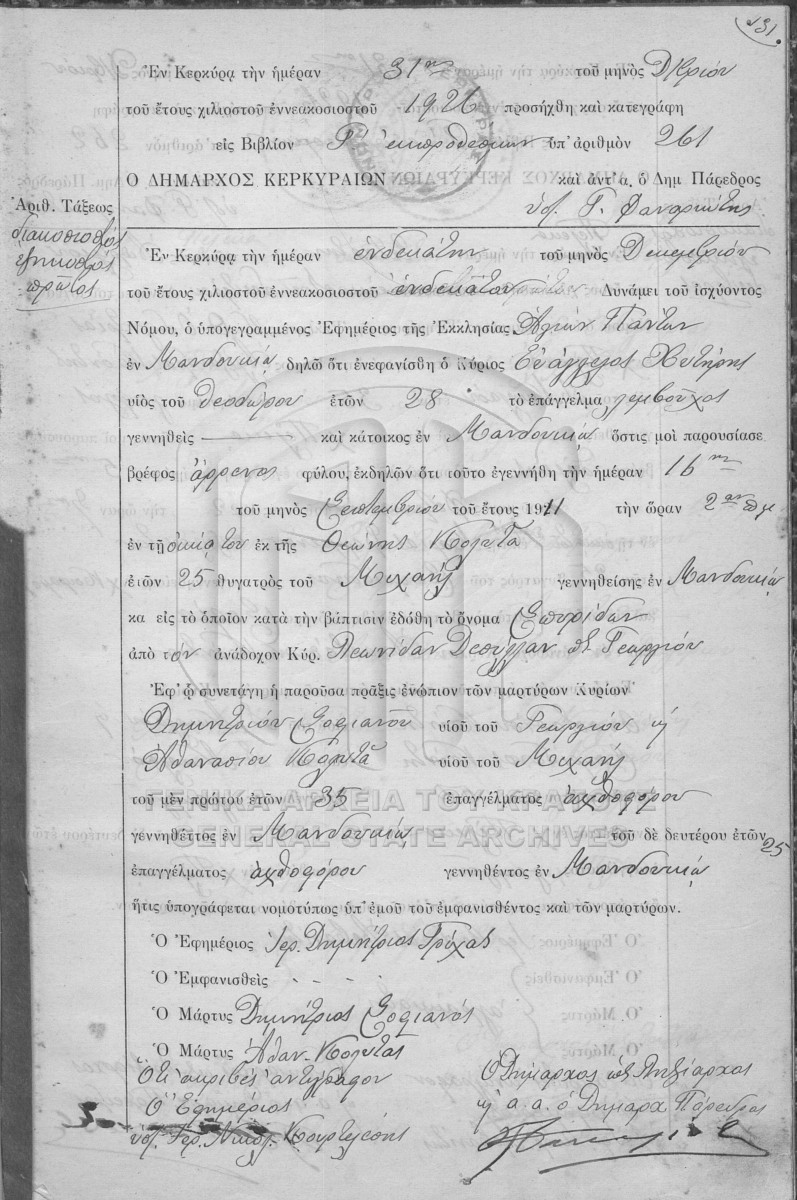 131.
Ἐν Κερκύρᾳ τὴν ἡμέραν 31ην τοῦ μηνὸς Δ/βρίου
τοῦ ἔτους χιλιοστοῦ ἐννεακοσιοστοῦ 1926 προσήχθη καὶ κατεγράφη
εἰς Βιβλίον Γ. ἐκπροθέσμων ὑπ' ἀριθμὸν 261
Ο ΔΗΜΑΡΧΟΣ ΚΕΡΚΥΡΑΙΩΝ καὶ ἀντ' α. ὁ Δημ Πάρεδρος
ὑπ. Γ. Φαναριώτης
Ἀριθ. Τάξεως
διακοσιοστός
ἑξηκοστός
πρῶτος
Ἐν Κερκύρᾳ τὴν ἡμέραν ἑνδεκάτην τοῦ μηνὸς Δεκεμβρίου
τοῦ ἔτους χιλιοστοῦ ἐννεακοσιοστοῦ ἑνδεκάτου Δυνάμει τοῦ ἰσχύοντος
Νόμου, ὁ ὑπογεγραμμένος Ἐφημέριος τῆς Ἐκκλησίας Ἁγίων Πάντων
ἐν Μανδουκίῳ δηλῶ ὅτι ἐνεφανίσθη ὁ Κύριος Εὐάγγελος Χυτήρης
υἱὸς τοῦ Θεοδώρου ἐτῶν 28 τὸ ἐπάγγελμα λεμβοῦχος
γεννηθεὶς καὶ κάτοικος ἐν Μανδουκίῳ ὅστις μοὶ παρουσίασε
βρέφος ἄρρενος φύλου, ἐκδηλῶν ὅτι τοῦτο ἐγεννήθη τὴν ἡμέραν 16ην
τοῦ μηνὸς Σεπτεμβρίου τοῦ ἔτους 1911 τὴν ὥραν 2αν πμ
ἐν τῇ οἰκίᾳ του ἐκ τῆς Θεώνης Κολυτᾶ
ἐτῶν 25 θυγατρὸς τοῦ Μιχαήλ γεννηθείσης ἐν Μανδουκίῳ
κα εἰς τὸ ὁποῖον κατὰ τὴν βάπτισιν ἐδόθη τὸ ὄνομα Σπυρίδων
ἀπὸ τὸν ἀνάδοχον Κύρ. Λεωνίδαν Δεπύλλαν τοῦ Γεωργίου
Ἐφ' ᾧ συνετάγη ἡ παροῦσα πρᾶξις ἐνώπιον τῶν μαρτύρων Κυρίων
Δημητρίου Σοφιανοῦ υἱοῦ τοῦ Γεωργίου κ
Ἀθανασίου Κολυτᾶ υἱοῦ τοῦ Μιχαήλ
τοῦ μὲν πρώτου ἐτῶν 35 ἐπαγγέλματος ἀχθοφόρου
γεννηθέττος ἐν Μανδουκίῳ τοῦ δὲ δευτέρου ἐτῶν 25
ἐπαγγέλματος ἀχθοφόρου γεννηθέντος ἐν Μανδουκίῳ
ἥτις ὑπογράφεται νομοτύπως ὑπ' ἐμοῦ τοῦ ἐμφανισθέντος καὶ τῶν μαρτύρων.
Ὁ Ἐφημέριος Ἱερ. Δημήτριος Γρύχας
Ὁ Ἐμφανισθεὶς - - - -
Ὁ Μάρτυς Δημήτριος Σοφιανός
Ὁ Μάρτυς Ἀθαν. Κολυτᾶς
Ὅτι ἀκριβές ἀντίγραφον
Ὁ Ἐφημέριος
ὑπ. Ἱερ. Νικολ. Κουρτελέσης
Ὁ Δήμαρχος ὡς Ληξίαρχος
κ α.α. ὁ Δημαρχ. Πάρεδρος
ΓΕΝΙΚΑ ΑΡΧΕΙΑ ΤΟΥ ΚΡΑΤΟΥΣ
GENERAL STATE ARCHIVES